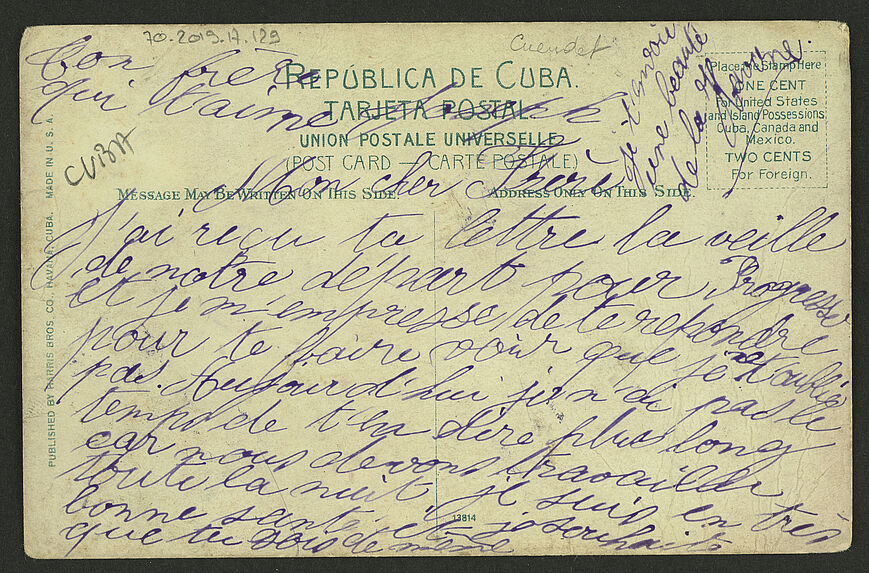 70-2019-17-129
Cuendet
Ton frère
qui t'aime
CUBA
Je t'envoie
une beauté
de la
REPÚBLICA DE CUBA.
TARJETA POSTAL
UNION POSTALE UNIVERSELLE
(POST CARD — CARTE POSTALE)
MESSAGE MAY BE WRITTEN ON THIS SIDE.
ADDRESS ONLY ON THIS SIDE.
Place the Stamp Here
ONE CENT
For United States
and Island Possessions
Cuba, Canada and
Mexico.
TWO CENTS
For Foreign.
Mon cher Frère
J'ai reçu ta lettre la veille
de notre départ pour Progresso
et je m'empresse de te repondre
pour te faire voir que je t'oublie
pas. Aujourd'hui je n'ai pas le
temps de t'en dire plus long
car nous devons travailler
toute la nuit je suis en très
bonne santé et je souhaite
que tu sois de même
13814
PUBLISHED BY HARRIS BROS. CO. HAVANA, CUBA. MADE IN U. S. A.